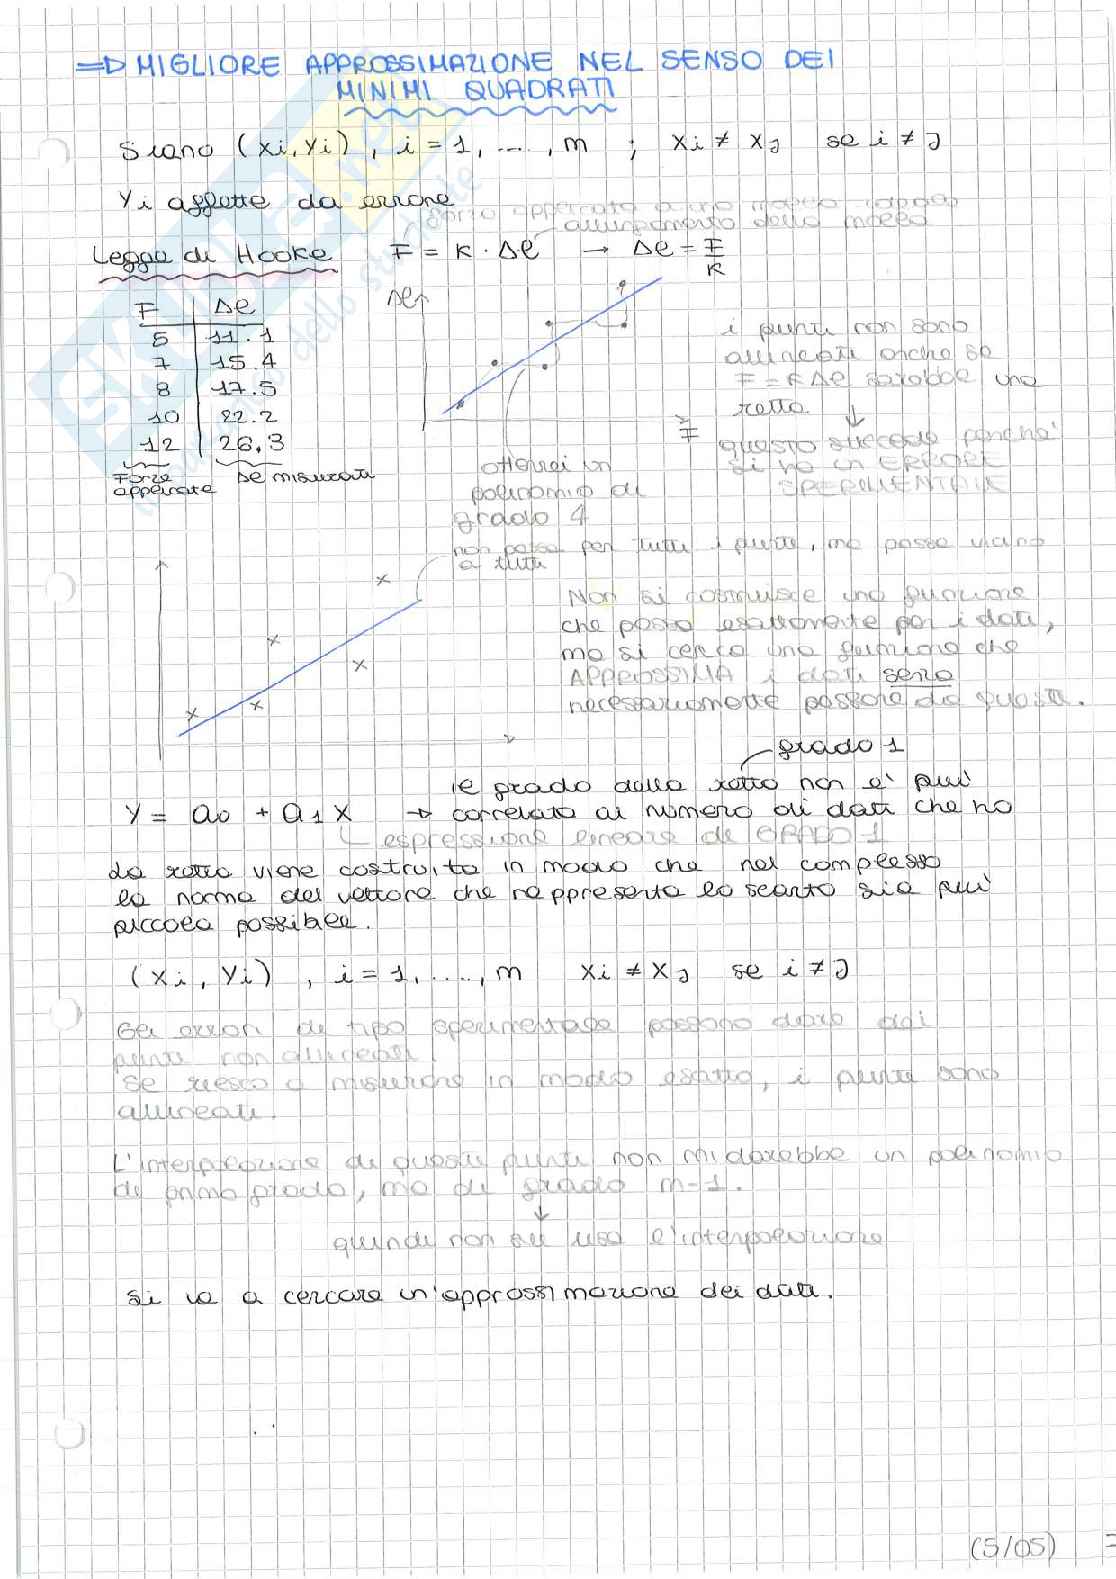 =D MIGLIORE APPROSSIMAZIONE NEL SENSO DEI
MINIMI QUADRATI
Siano (xi, yi), i = 1, ..., m ; xi ≠ xj se i ≠ j
Yi affette da errore
forza applicata a una molla
allungamento della molla
Legge di Hooke F = K · Δl → Δl = F/K
F | Δl
5 | 11.1
7 | 15.4
8 | 17.5
10 | 22.2
12 | 26.3
Forze applicate
Δl misurati
Δl
F
i punti non sono
allineati anche se
F = K Δl sarebbe una
retta.
questo succede perché
si ha un ERRORE
SPERIMENTALE
otterrei un
polinomio di
grado 4
non passa per tutti i punti, ma passa vicino
a tutti
Non si costruisce una funzione
che passa esattamente per i dati,
ma si cerca una funzione che
APPROSSIMA i dati senza
necessariamente passare da questi.
grado 1
il grado della retta non è più
Y = a0 + a1 X → correlato al numero di dati che ho
espressione lineare di GRADO 1
La retta viene costruita in modo che nel complesso
la norma del vettore che rappresenta lo scarto sia più
piccola possibile.
(xi, yi), i = 1, ...., m xi ≠ xj se i ≠ j
Gli errori di tipo sperimentale possono dare
punti non allineati.
Se riesco a misurare in modo esatto, i punti sono
allineati.
L'interpolazione di questi punti non mi darebbe un polinomio
di primo grado, ma di grado m-1.
↓
quindi non si usa l'interpolazione
Si va a cercare un'approssimazione dei dati.
(5/05)